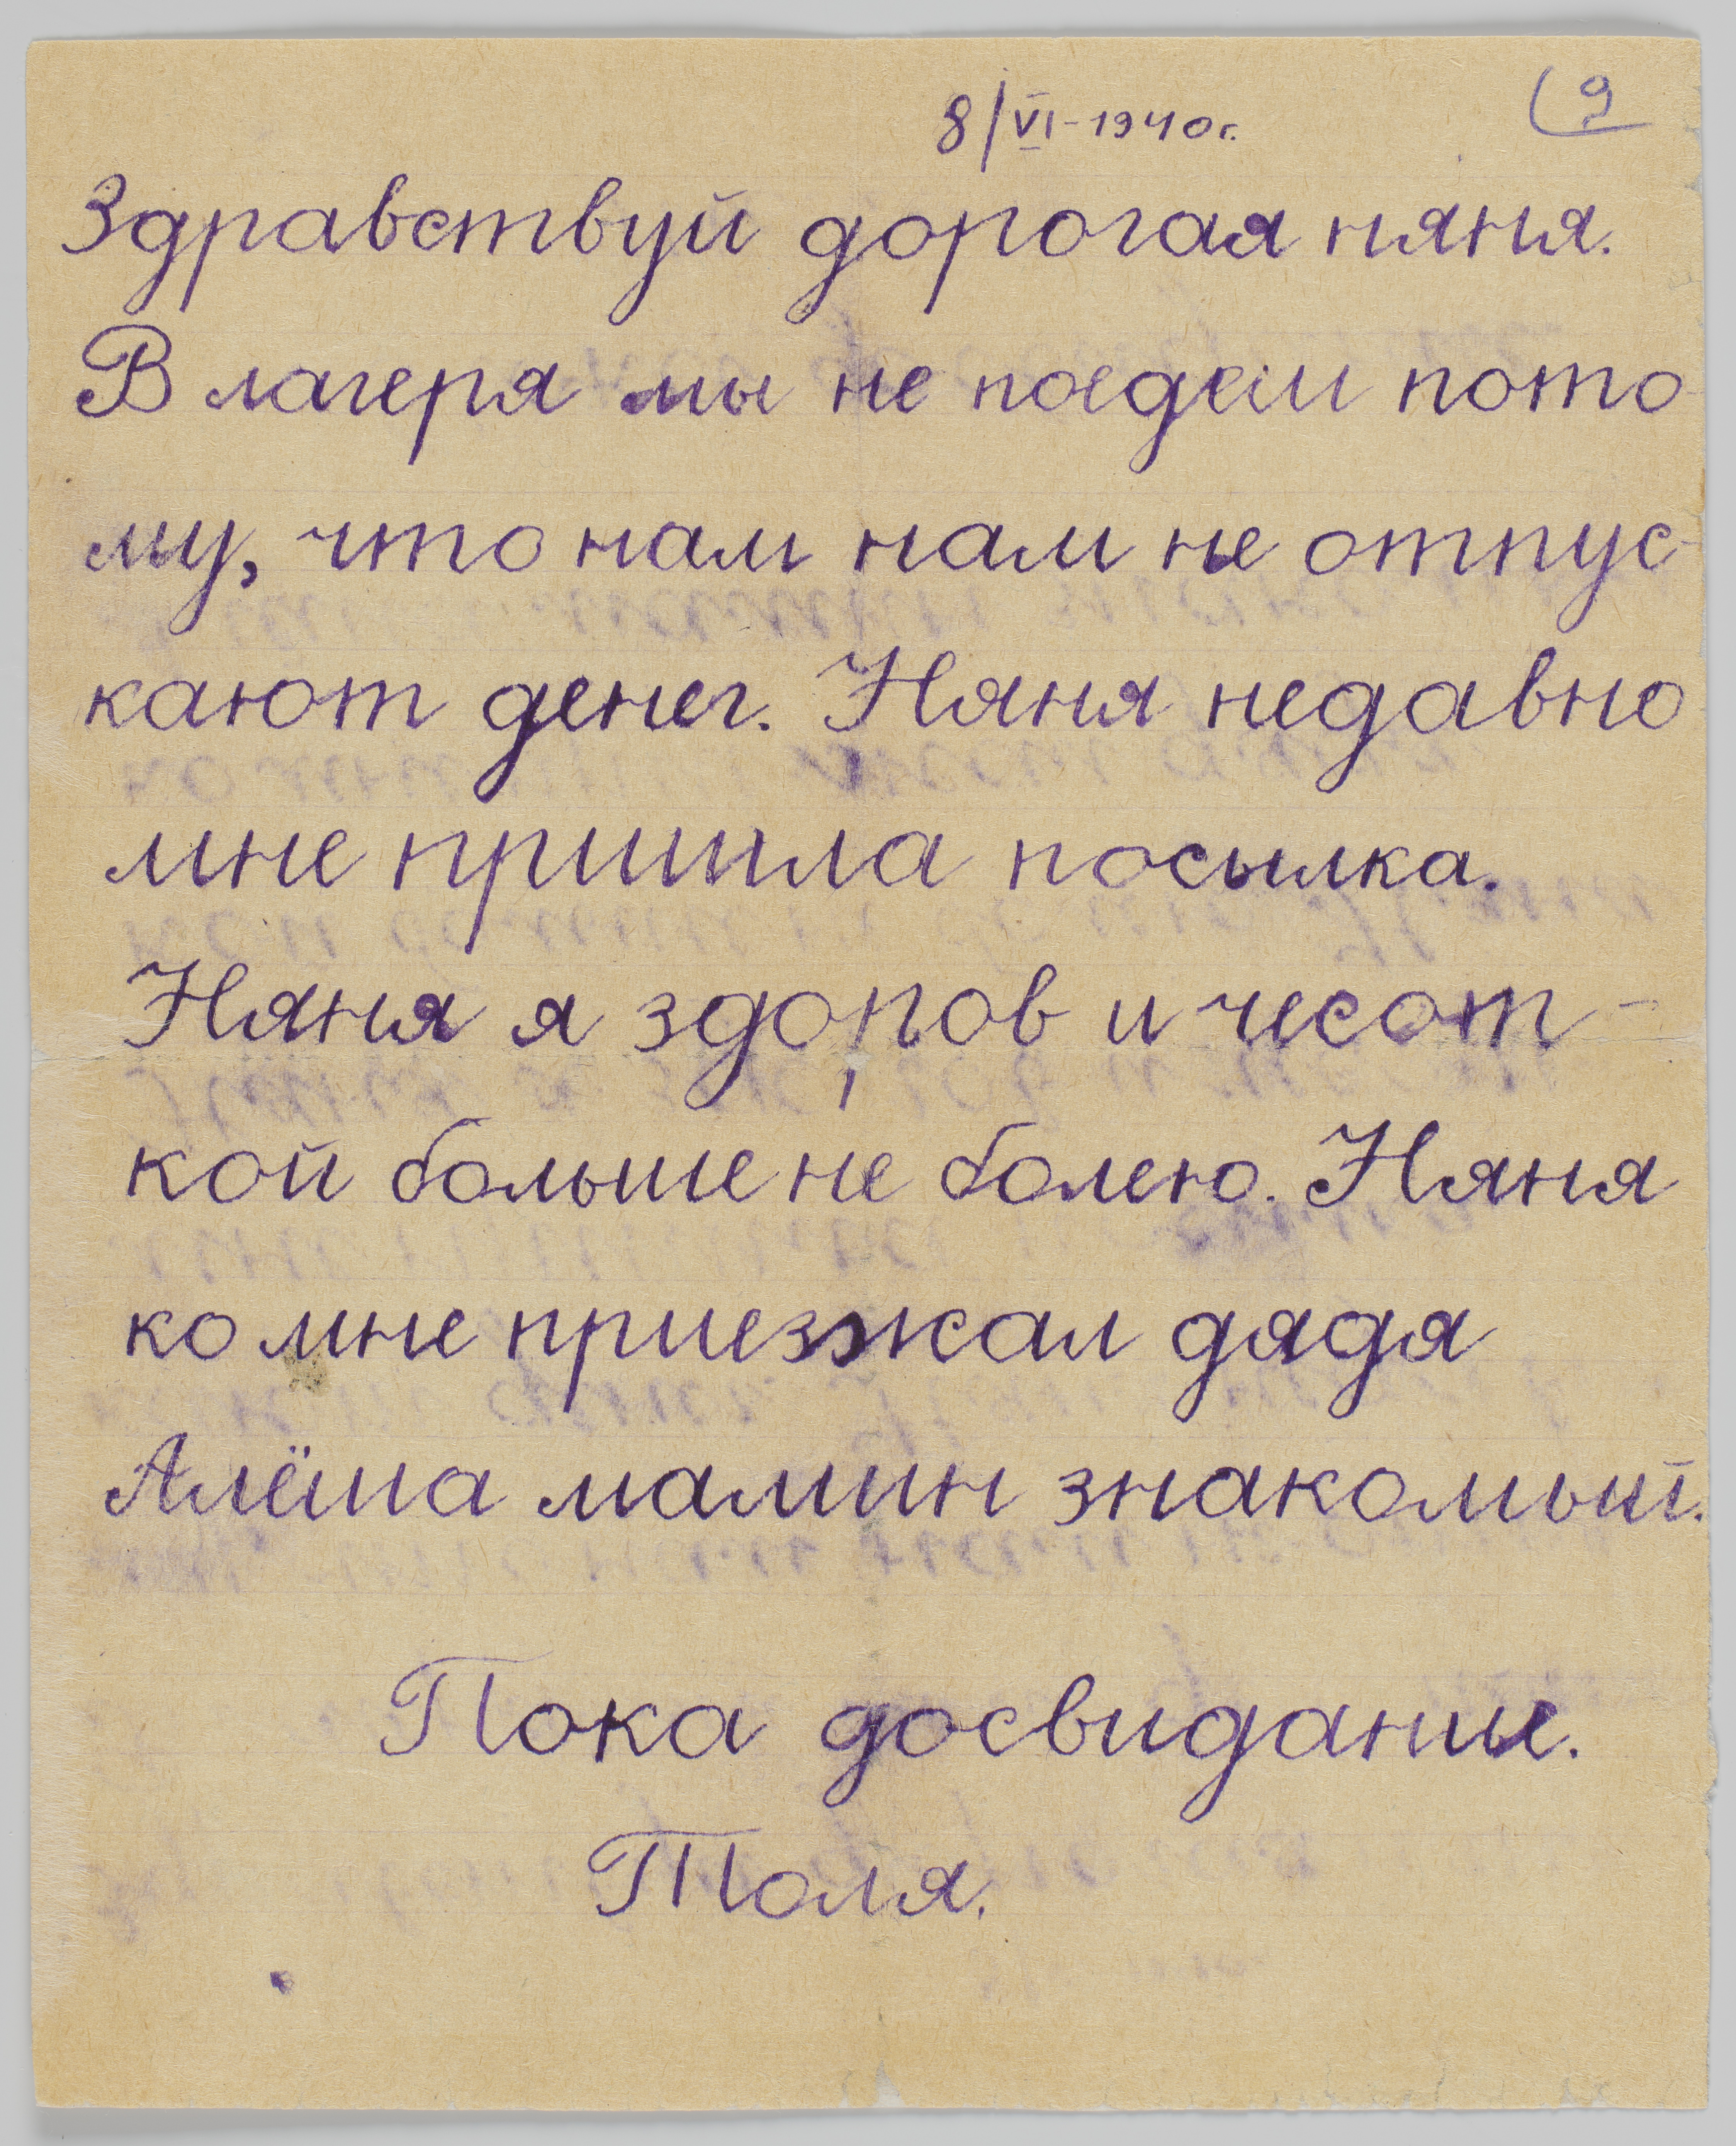 8/VI-1940г.
9
Здравствуй дорогая няня.
В лагеря мы не поедем пото
му, что нам нам не отпус-
кают денег. Няня недавно
мне пришла посылка.
Няня я здоров и чесот-
кой больше не болею. Няня
ко мне приезжал дядя
Алёша мамин знакомый.
Пока досвидание.
Толя.